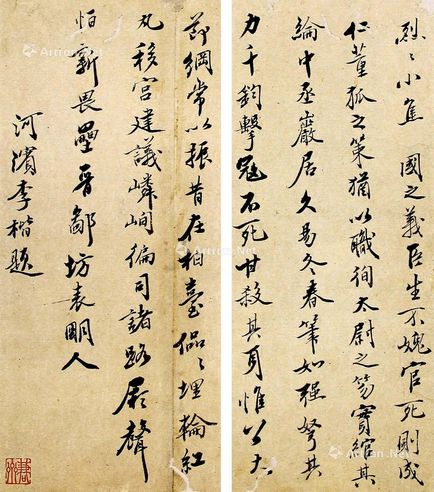 烈烈小隹國之義臣生不媿官死則成
仁董狐之策猶以職徇太尉之笏實綰其
綸中丞巖居久易冬春筆如強弩其
力千鈞擊冠不死甘殺其身惟公大
節綱常以振昔在柏臺侃侃埋輪紅
丸移宮建議嶙峋徧司諸路夙聲
怕新畏壘晉鄙坊表朙人
河濱李楷題
Artron.Net